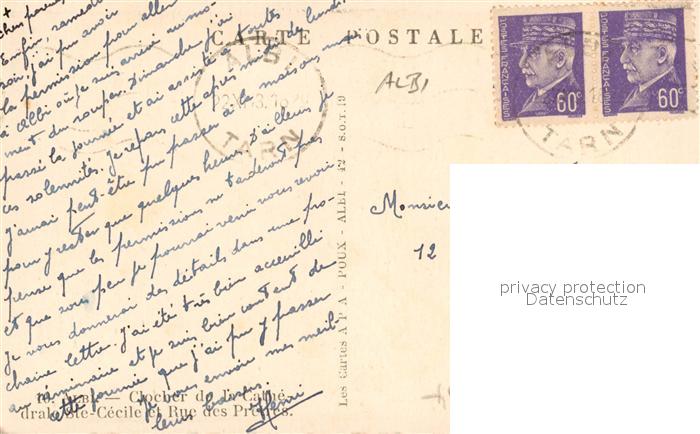 +
Chers parents,
Enfin, samedi
soir, j'ai pu avoir
la permission pour aller
à Albi où je suis arrivé au mo-
ment du souper. Dimanche j'ai
passé la journée et ai assisté à toutes
ces solennités. Je repars cette après midi de lundi.
J'aurai peut-être pu passer à la maison
pour y rester que quelques heures. D'ailleurs je
pense que les permissions ne tarderont pas
et que sous peu je pourrai venir vous revoir
Je vous donnerai des détails dans une pro-
chaine lettre. J'ai été très bien accueilli
au séminaire et je suis bien content de
cette journée que j'ai pu y passer
Je vous envoie mes meil-
leurs baisers.
Henri
CARTE POSTALE
ALBI
TARN
ALBI
POSTES FRANÇAISES
60c
POSTES FRANÇAISES
60c
TARN
Monsieur
12
privacy protection
Datenschutz
Les Cartes A P A - POUX - ALBI - 42 - S.O.T. 19
10. ALBI — Clocher de la Cathé-
drale Ste-Cécile et Rue des Prêtres.